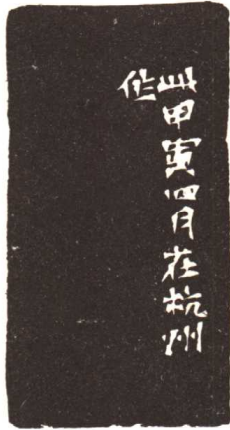 此甲寅四月在杭州
作